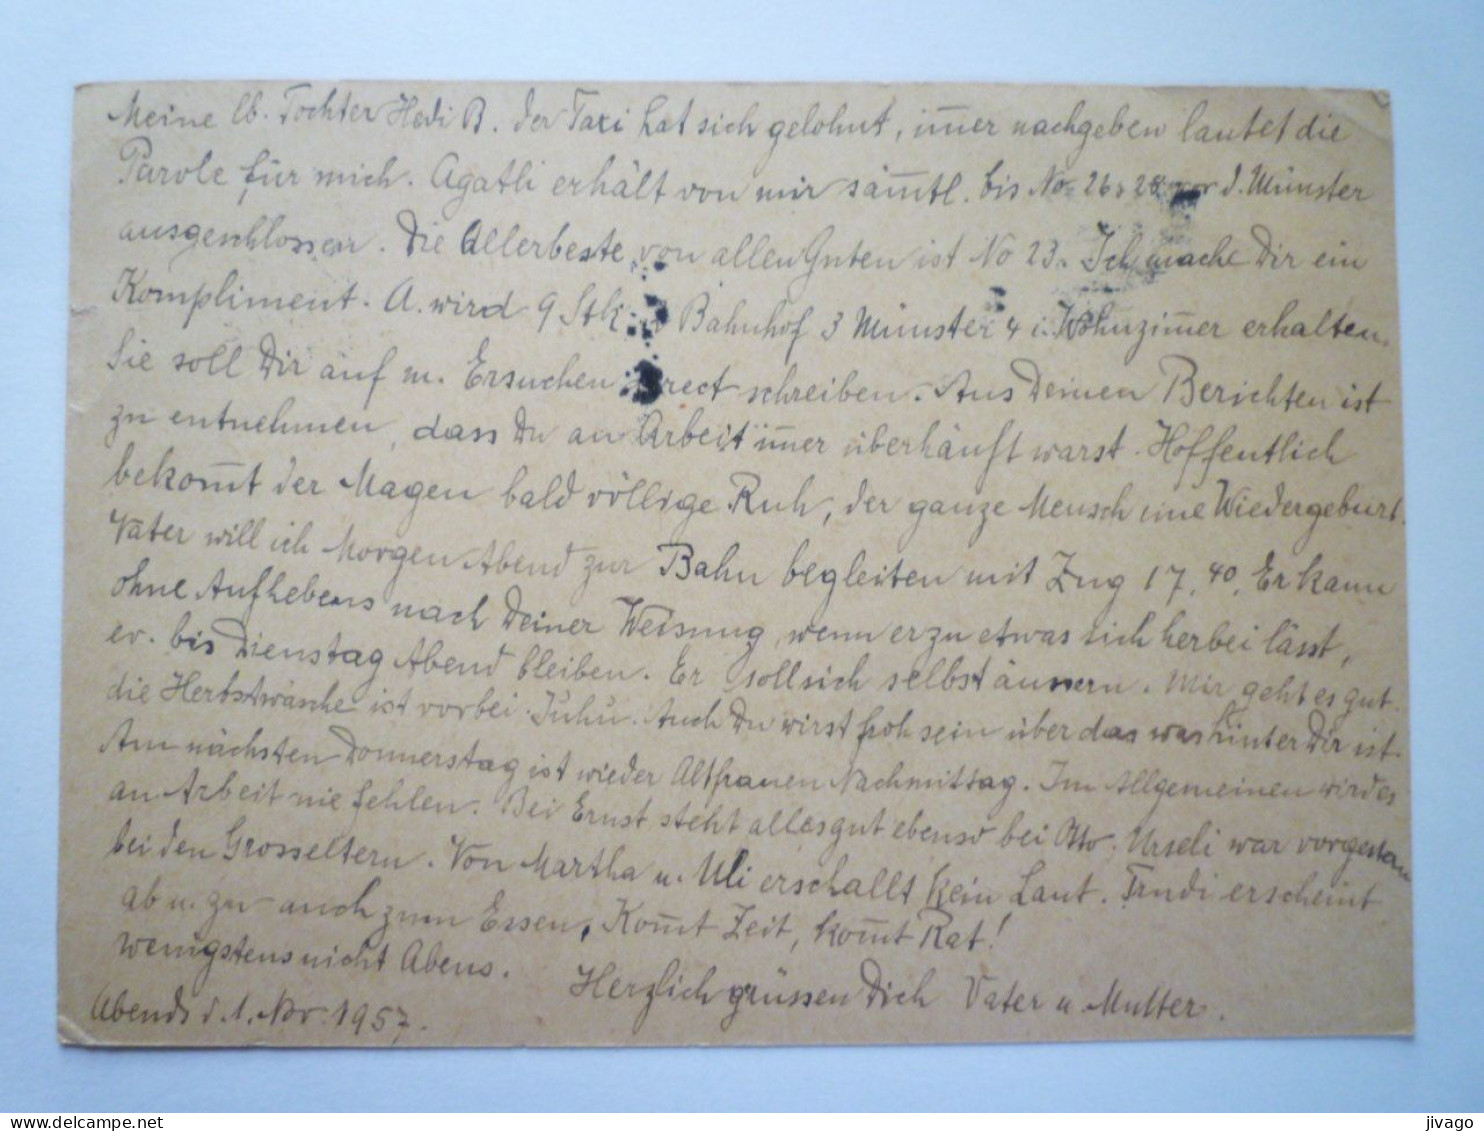 Meine lb. Tochter Hedi B. der Taxi hat sich gelohnt, im̅er nachgeben lautet die
Parole für mich. Agatli erhält von mir säm̅tl. bis No 26, 28 vor d. Münster
ausgeschlossen. Die Allerbeste von allen Guten ist No 23. Ich mache Dir ein
Kompliment. A. wird 9 Stk. Bahnhof 3 Münster 4 i. Wohnzim̅er erhalten.
Sie soll Dir auf m. Ersuchen direct schreiben. Aus Deinen Berichten ist
zu entnehmen, dass Du an Arbeit im̅er überhäuft warst. Hoffentlich
bekom̅t der Magen bald völlige Ruh, der ganze Mensch eine Wiedergeburt.
Vater will ich Morgen Abend zur Bahn begleiten mit Zug 17.40. Er kann
ohne Aufhebens nach Deiner Weisung, wenn er zu etwas sich herbei lässt,
ev. bis Dienstag Abend bleiben. Er soll sich selbst äussern. Mir geht es gut.
die Herbstwäsche ist vorbei. Juhu. Auch Du wirst froh sein über das was hinter Dir ist.
Am nächsten Donnerstag ist wieder Altfrauen Nachmittag. Im Allgemeinen wird es
an Arbeit nie fehlen. Bei Ernst steht alles gut ebenso bei Otto. Urseli war vorgestern
bei den Grosseltern. Von Martha u. Uli erschallt kein Laut. Trudi erscheint
ab u. zu auch zum Essen, Kom̅t Zeit, kom̅t Rat!
wenigstens nicht Abens.
Herzlich grüssen Dich Vater u. Mutter.
Abends d. 1. Nov. 1957.
jivago